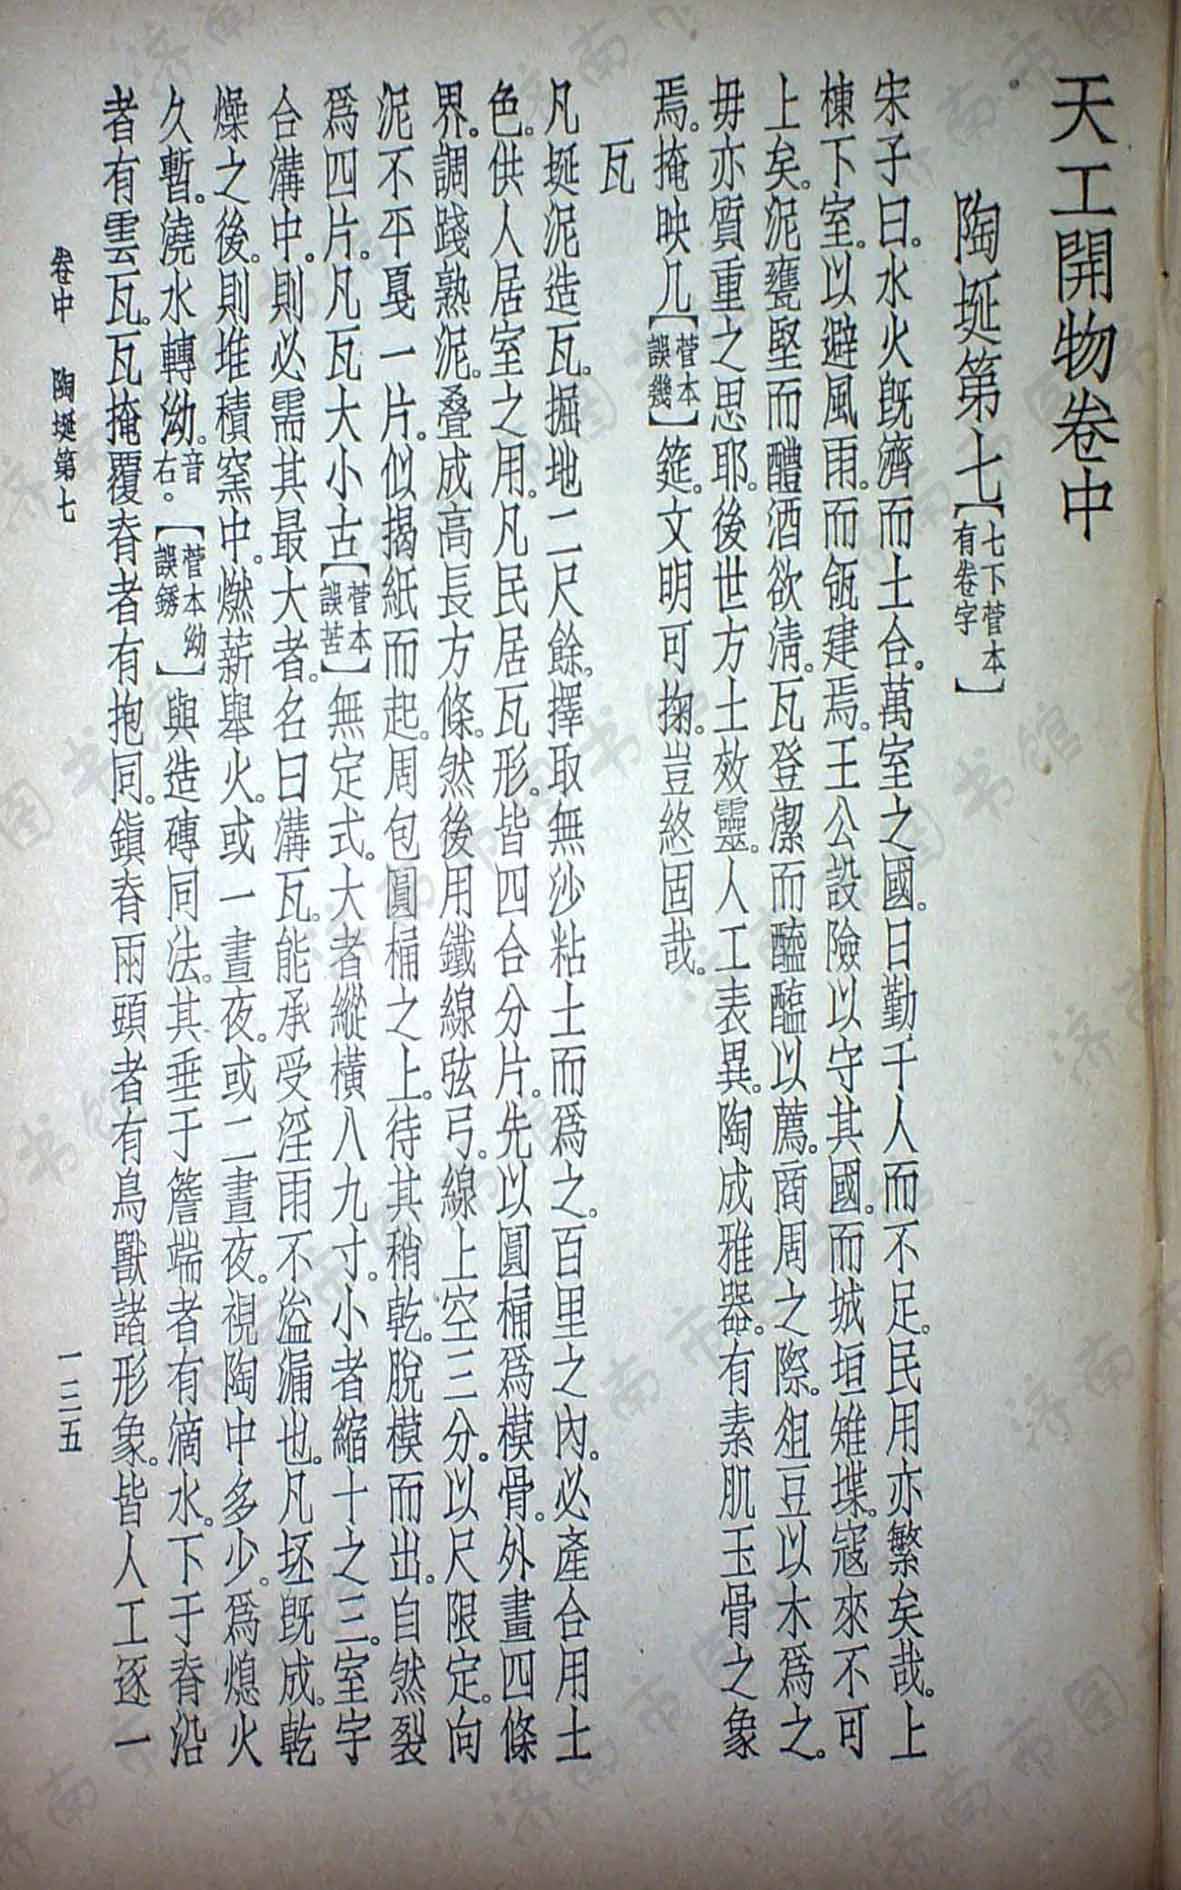 天工開物卷中
陶埏第七【七下菅本有卷字】
宋子曰。水火既濟而土合。萬室之國。日勤千人而不足。民用亦繁矣哉。上
棟下室。以避風雨。而瓴建焉。王公設險以守其國。而城垣雉堞。寇來不可
上矣。泥甕堅而醴酒欲清。瓦登潔而醯醢以薦。商周之際。俎豆以木爲之。
毋亦質重之思耶。後世方土效靈。人工表異。陶成雅器。有素肌玉骨之象
焉。掩映几【菅本誤幾】筵。文明可掬。豈終固哉。
瓦
凡埏泥造瓦。掘地二尺餘。擇取無沙粘土而爲之。百里之內。必產合用土
色。供人居室之用。凡民居瓦形。皆四合分片。先以圓桶爲模骨。外畫四條
界。調踐熟泥。叠成高長方條。然後用鐵線弦弓。線上空三分。以尺限定。向
泥不平戛一片。似揭紙而起。周包圓桶之上。待其稍乾。脫模而出。自然裂
爲四片。凡瓦大小古【菅本誤苦】無定式。大者縱橫八九寸。小者縮十之三。室宇
合溝中。則必需其最大者。名曰溝瓦。能承受淫雨不溢漏也。凡坯既成。乾
燥之後。則堆積窯中。燃薪舉火。或一晝夜。或二晝夜。視陶中多少。爲熄火
久暫。澆水轉泑。音右。【菅本泑誤銹】與造磚同法。其垂于簷端者有滴水。下于脊沿
者有雲瓦。瓦掩覆脊者有抱同。鎮脊兩頭者有鳥獸諸形象。皆人工逐一
卷中　陶埏第七　一二五